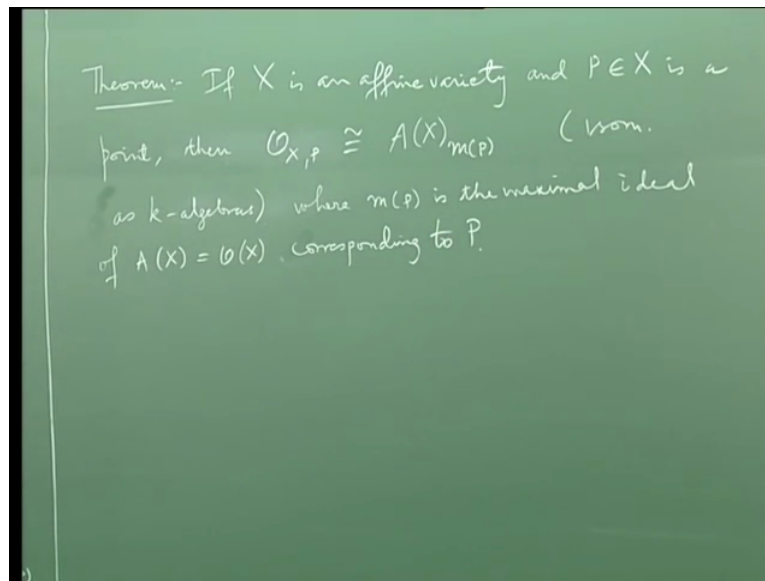 Theorem:- If X is an affine variety and P ∈ X is a
point, then 𝒪_{X,P} ≅ A(X)_{m(P)} (isom.
as k-algebras) where m(P) is the maximal ideal
of A(X) = 𝒪(X) corresponding to P.